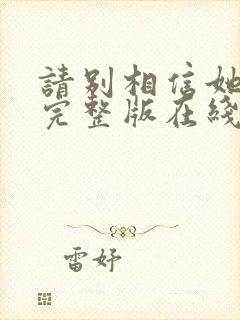 請別相信她
完整版在綫
雷妤